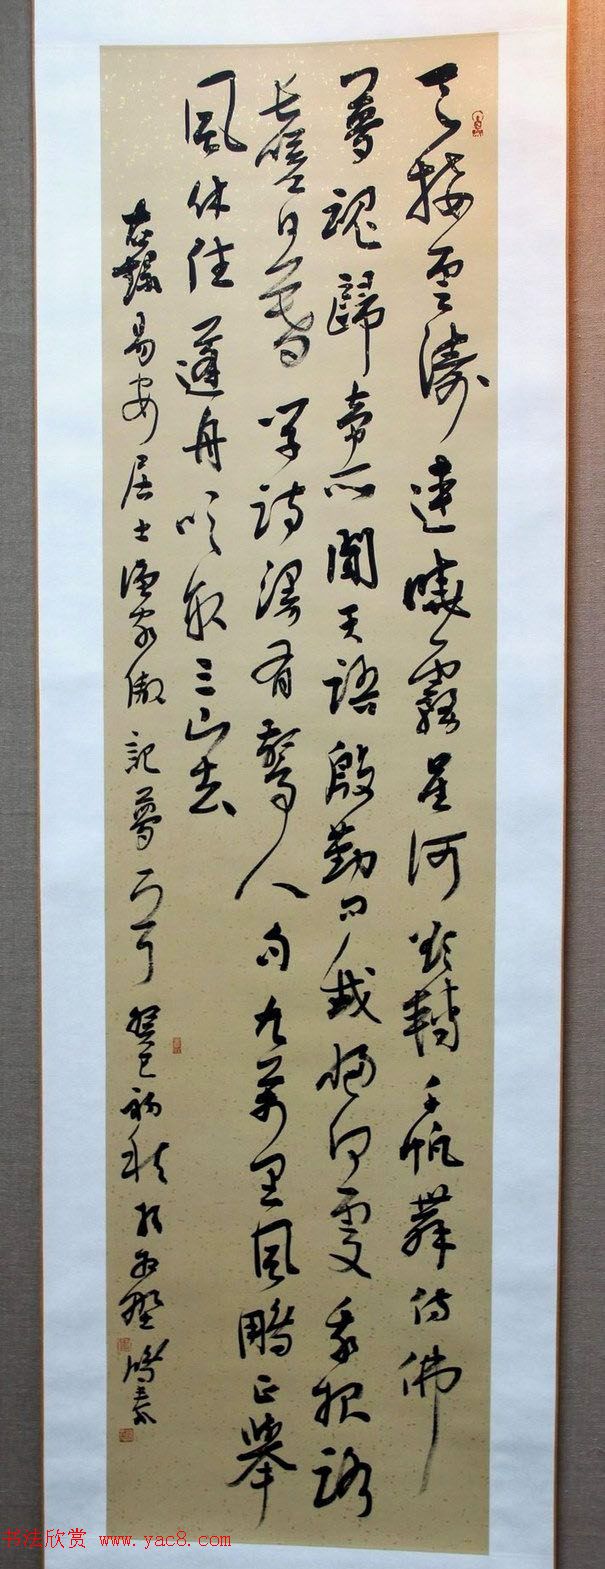 天接雲濤連曉霧星河欲轉千帆舞仿佛
夢魂歸帝所聞天語殷勤問我歸何處我報路
長嗟日暮學詩謾有驚人句九萬里風鵬正舉
風休住蓬舟吹取三山去
右錄易安居士漁家傲記夢 癸巳初秋
书法欣赏 www.yac8.com